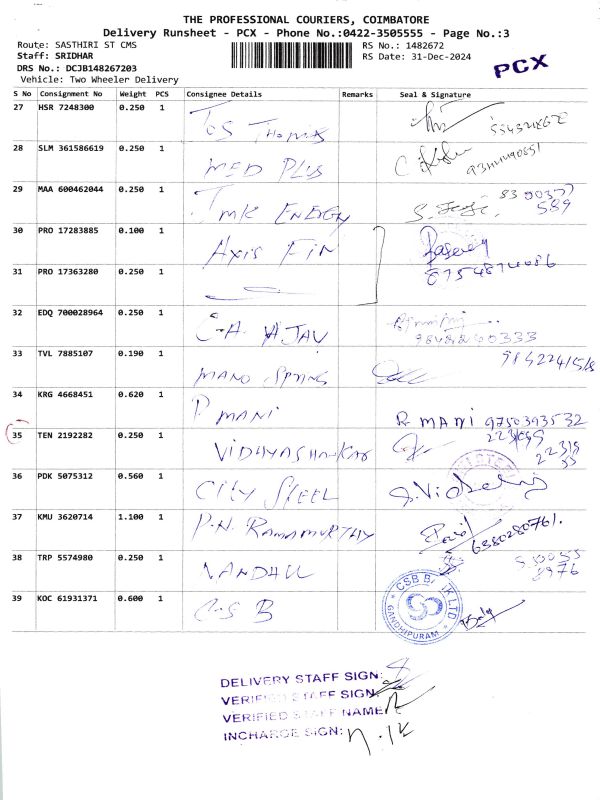 THE PROFESSIONAL COURIERS, COIMBATORE
Delivery Runsheet - PCX - Phone No.:0422-3505555 - Page No.:3
Route: SASTHIRI ST CMS
RS No.: 1482672
Staff: SRIDHAR
RS Date: 31-Dec-2024
DRS No.: DCJB148267203
Vehicle: Two Wheeler Delivery
PCX
S No Consignment No Weight PCS Consignee Details Remarks Seal & Signature
27 HSR 7248300 0.250 1 Thomas
28 SLM 361586619 0.250 1 MED PLUS
29 MAA 600462044 0.250 1 TMK ENERGY
589
30 PRO 17283885 0.100 1 AXIS FIN
31 PRO 17363280 0.250 1
32 EDQ 700028964 0.250 1
33 TVL 7885107 0.190 1
34 KRG 4668451 0.620 1 P. MANI R MANI 9750393532
35 TEN 2192282 0.250 1 VIDHYASHANKAR
36 PDK 5075312 0.560 1 CITY STEEL
37 KMU 3620714 1.100 1 P.N. RAMAMURTHY 6380280761.
38 TRP 5574980 0.250 1 NANDHU
39 KOC 61931371 0.600 1 CSB
CSB BANK LTD
GANDHIPURAM
DELIVERY STAFF SIGN:
VERIFIED STAFF SIGN:
VERIFIED STAFF NAME:
INCHARGE SIGN: